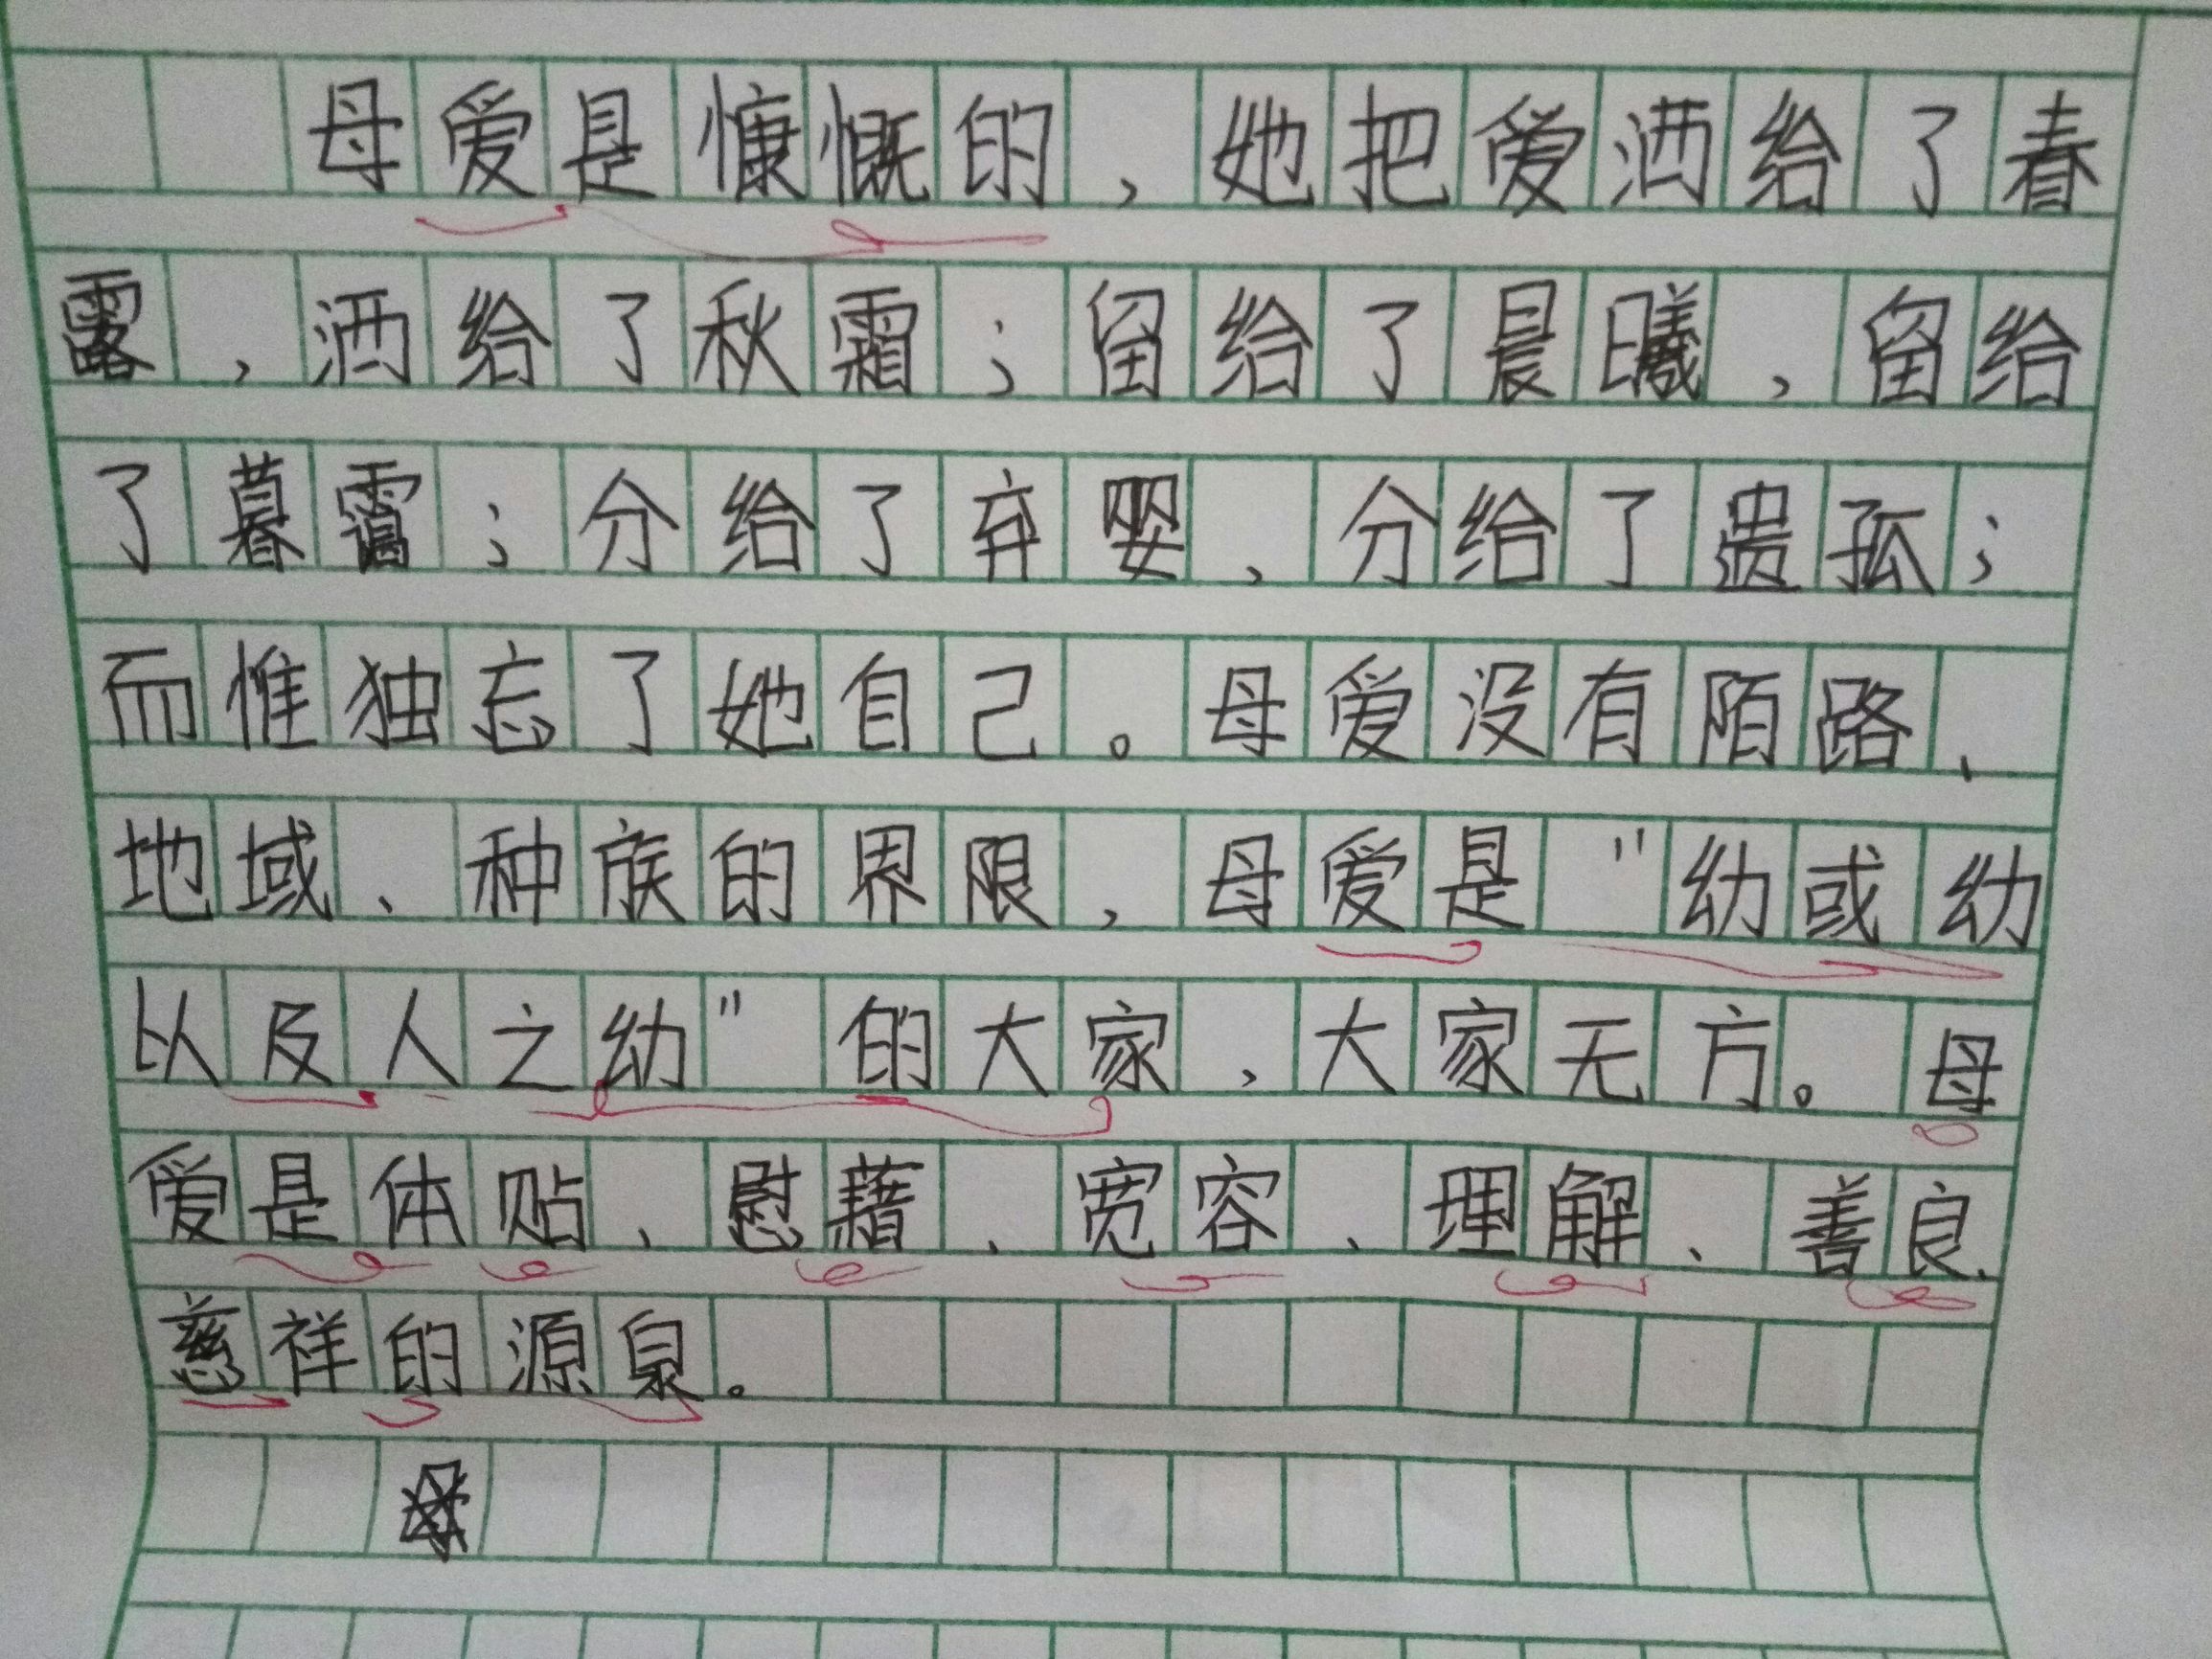 母爱是慷慨的，她把爱洒给了春
露，洒给了秋霜；留给了晨曦，留给
了暮霭；分给了弃婴，分给了遗孤；
而惟独忘了她自己。母爱没有陌路、
地域、种族的界限，母爱是"幼或幼
以及人之幼"的大家，大家无方。母
爱是体贴、慰藉、宽容、理解、善良、
慈祥的源泉。